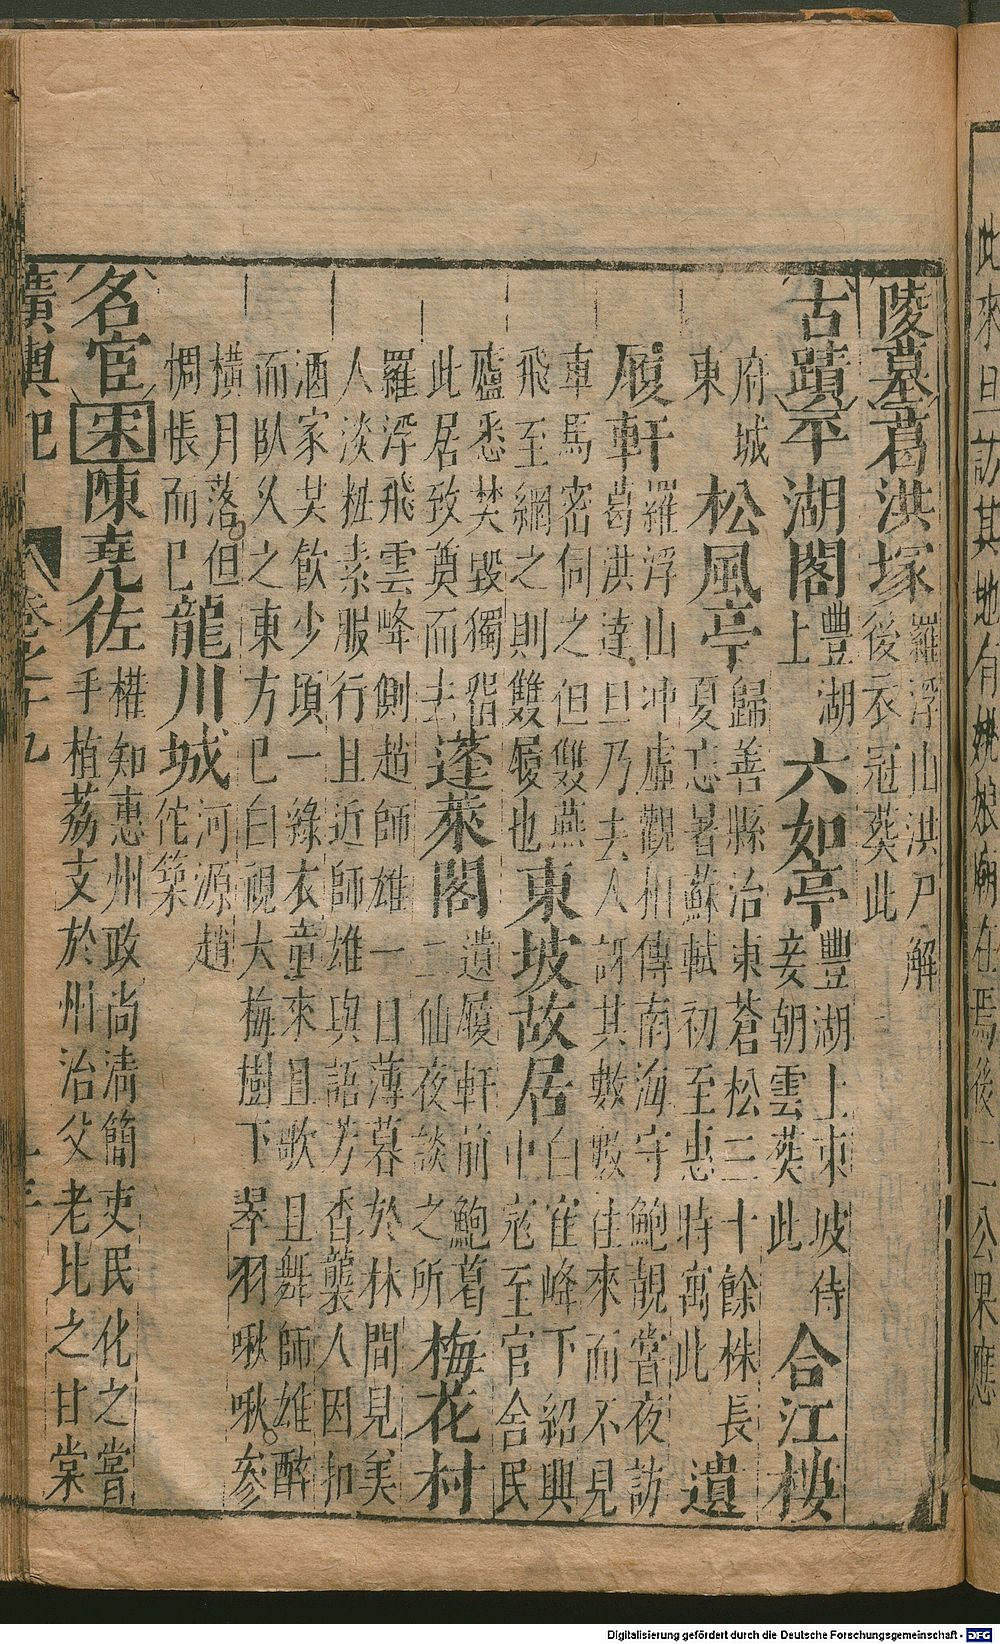 此來旦訪其地有姚娘廟在焉後二公果應
陵墓葛洪塚羅浮山洪尸解
後衣冠葬此
古蹟平湖閣豐湖
上六如亭豐湖上東坡侍
妾朝雲葬此合江樓
府城
東松風亭歸善縣治東蒼松三十餘株長
夏忘暑蘇軾初至惠時寓此遺
履軒羅浮山冲虛觀相傳南海守鮑靚嘗夜訪
葛洪達旦乃去人訝其數數往來而不見
車馬密伺之但雙燕
飛至網之則雙履也東坡故居白雀峰下紹興
中寇至官舍民
廬悉焚毀獨留
此居致奠而去蓬萊閣遺履軒前鮑葛
二仙夜談之所梅花村
羅浮飛雲峰側趙師雄一日薄暮於林間見美
人淡粧素服行且近師雄與語芳香襲人因扣
酒家共飲少頃一綠衣童來且歌且舞師雄醉
而臥久之東方已白視大梅樹下翠羽啾啾參
橫月落但
惆悵而已龍川城河源趙
佗築
名宦宋陳堯佐權知惠州政尚清簡吏民化之嘗
手植荔支於州治父老比之甘棠
廣輿記 卷之十九
Digitalisierung gefördert durch die Deutsche Forschungsgemeinschaft - DFG